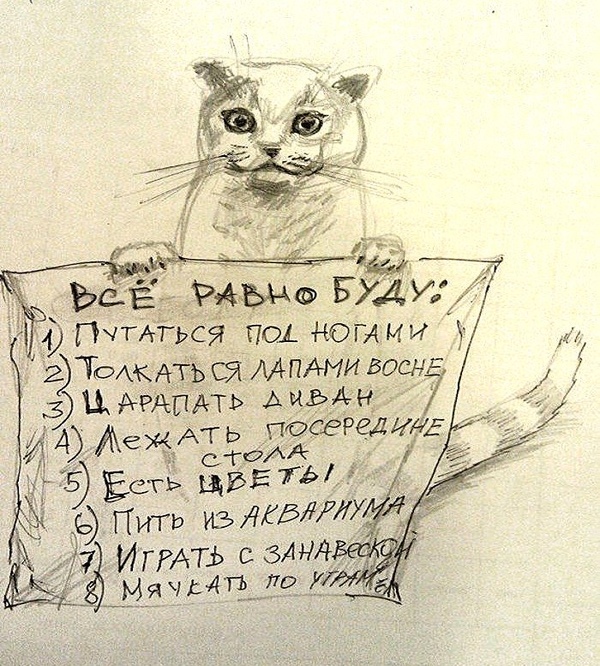 ВСЁ РАВНО БУДУ:
1) ПУТАТЬСЯ ПОД НОГАМИ
2) ТОЛКАТЬСЯ ЛАПАМИ ВОСНЕ
3) ЦАРАПАТЬ ДИВАН
4) ЛЕЖАТЬ ПОСЕРЕДИНЕ
СТОЛА
5) ЕСТЬ ЦВЕТЫ
6) ПИТЬ ИЗ АКВАРИУМА
7) ИГРАТЬ С ЗАНАВЕСКОЙ
8) МЯУКАТЬ ПО УТРАМ